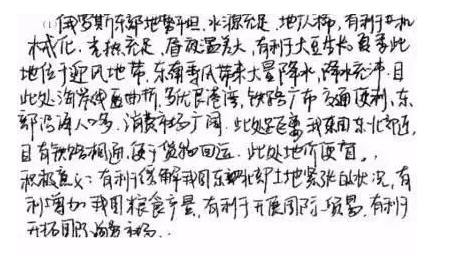 (1)俄罗斯东部地势平坦,水源充足,地广人稀,有利于机
械化,光热充足,昼夜温差大,有利于大豆生长,夏季此
地位于迎风地带,东南季风带来大量降水,降水充沛.且
此处海岸线曲折,多优良港湾,铁路广布交通便利,东
部沿海人口多,消费市场广阔.此处距离我国东北部近,
且有铁路相通,便于货物回运.此处地价便宜.
积极意义:有利于缓解我国东部北部土地紧张的状况,有
利增加我国粮食产量,有利于开展国际贸易,有利于
开拓国际海外市场.